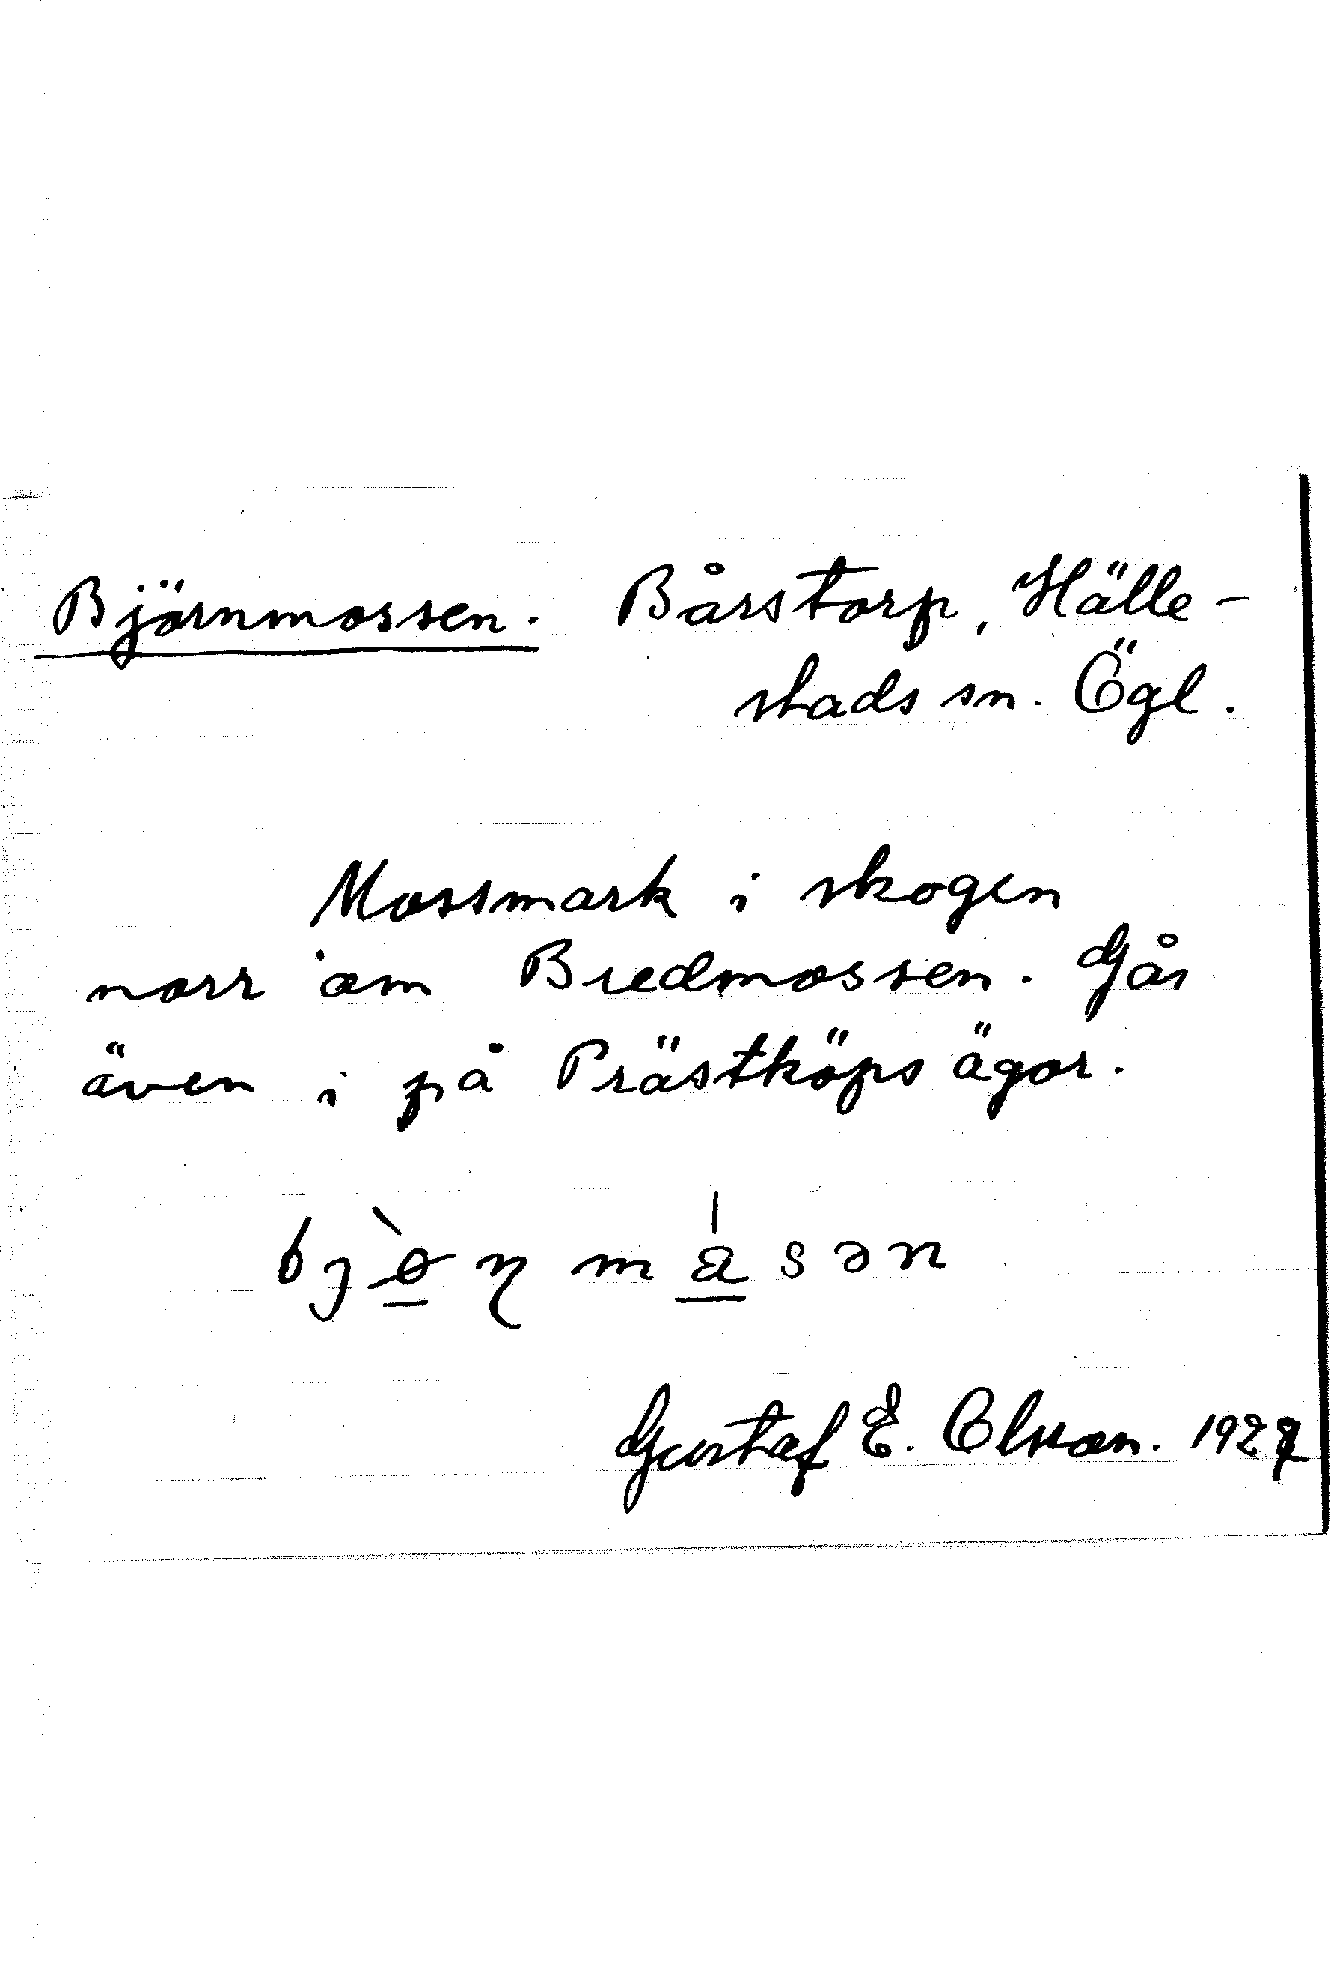 Björnmossen. Bårstorp, Hälle-
stads sn. Ögl.
Mossmark i skogen
norr om Bredmossen. Går
även i på Prästköps ägor.
bjø̀ɳmásən
Gustaf E. Olsson. 1927